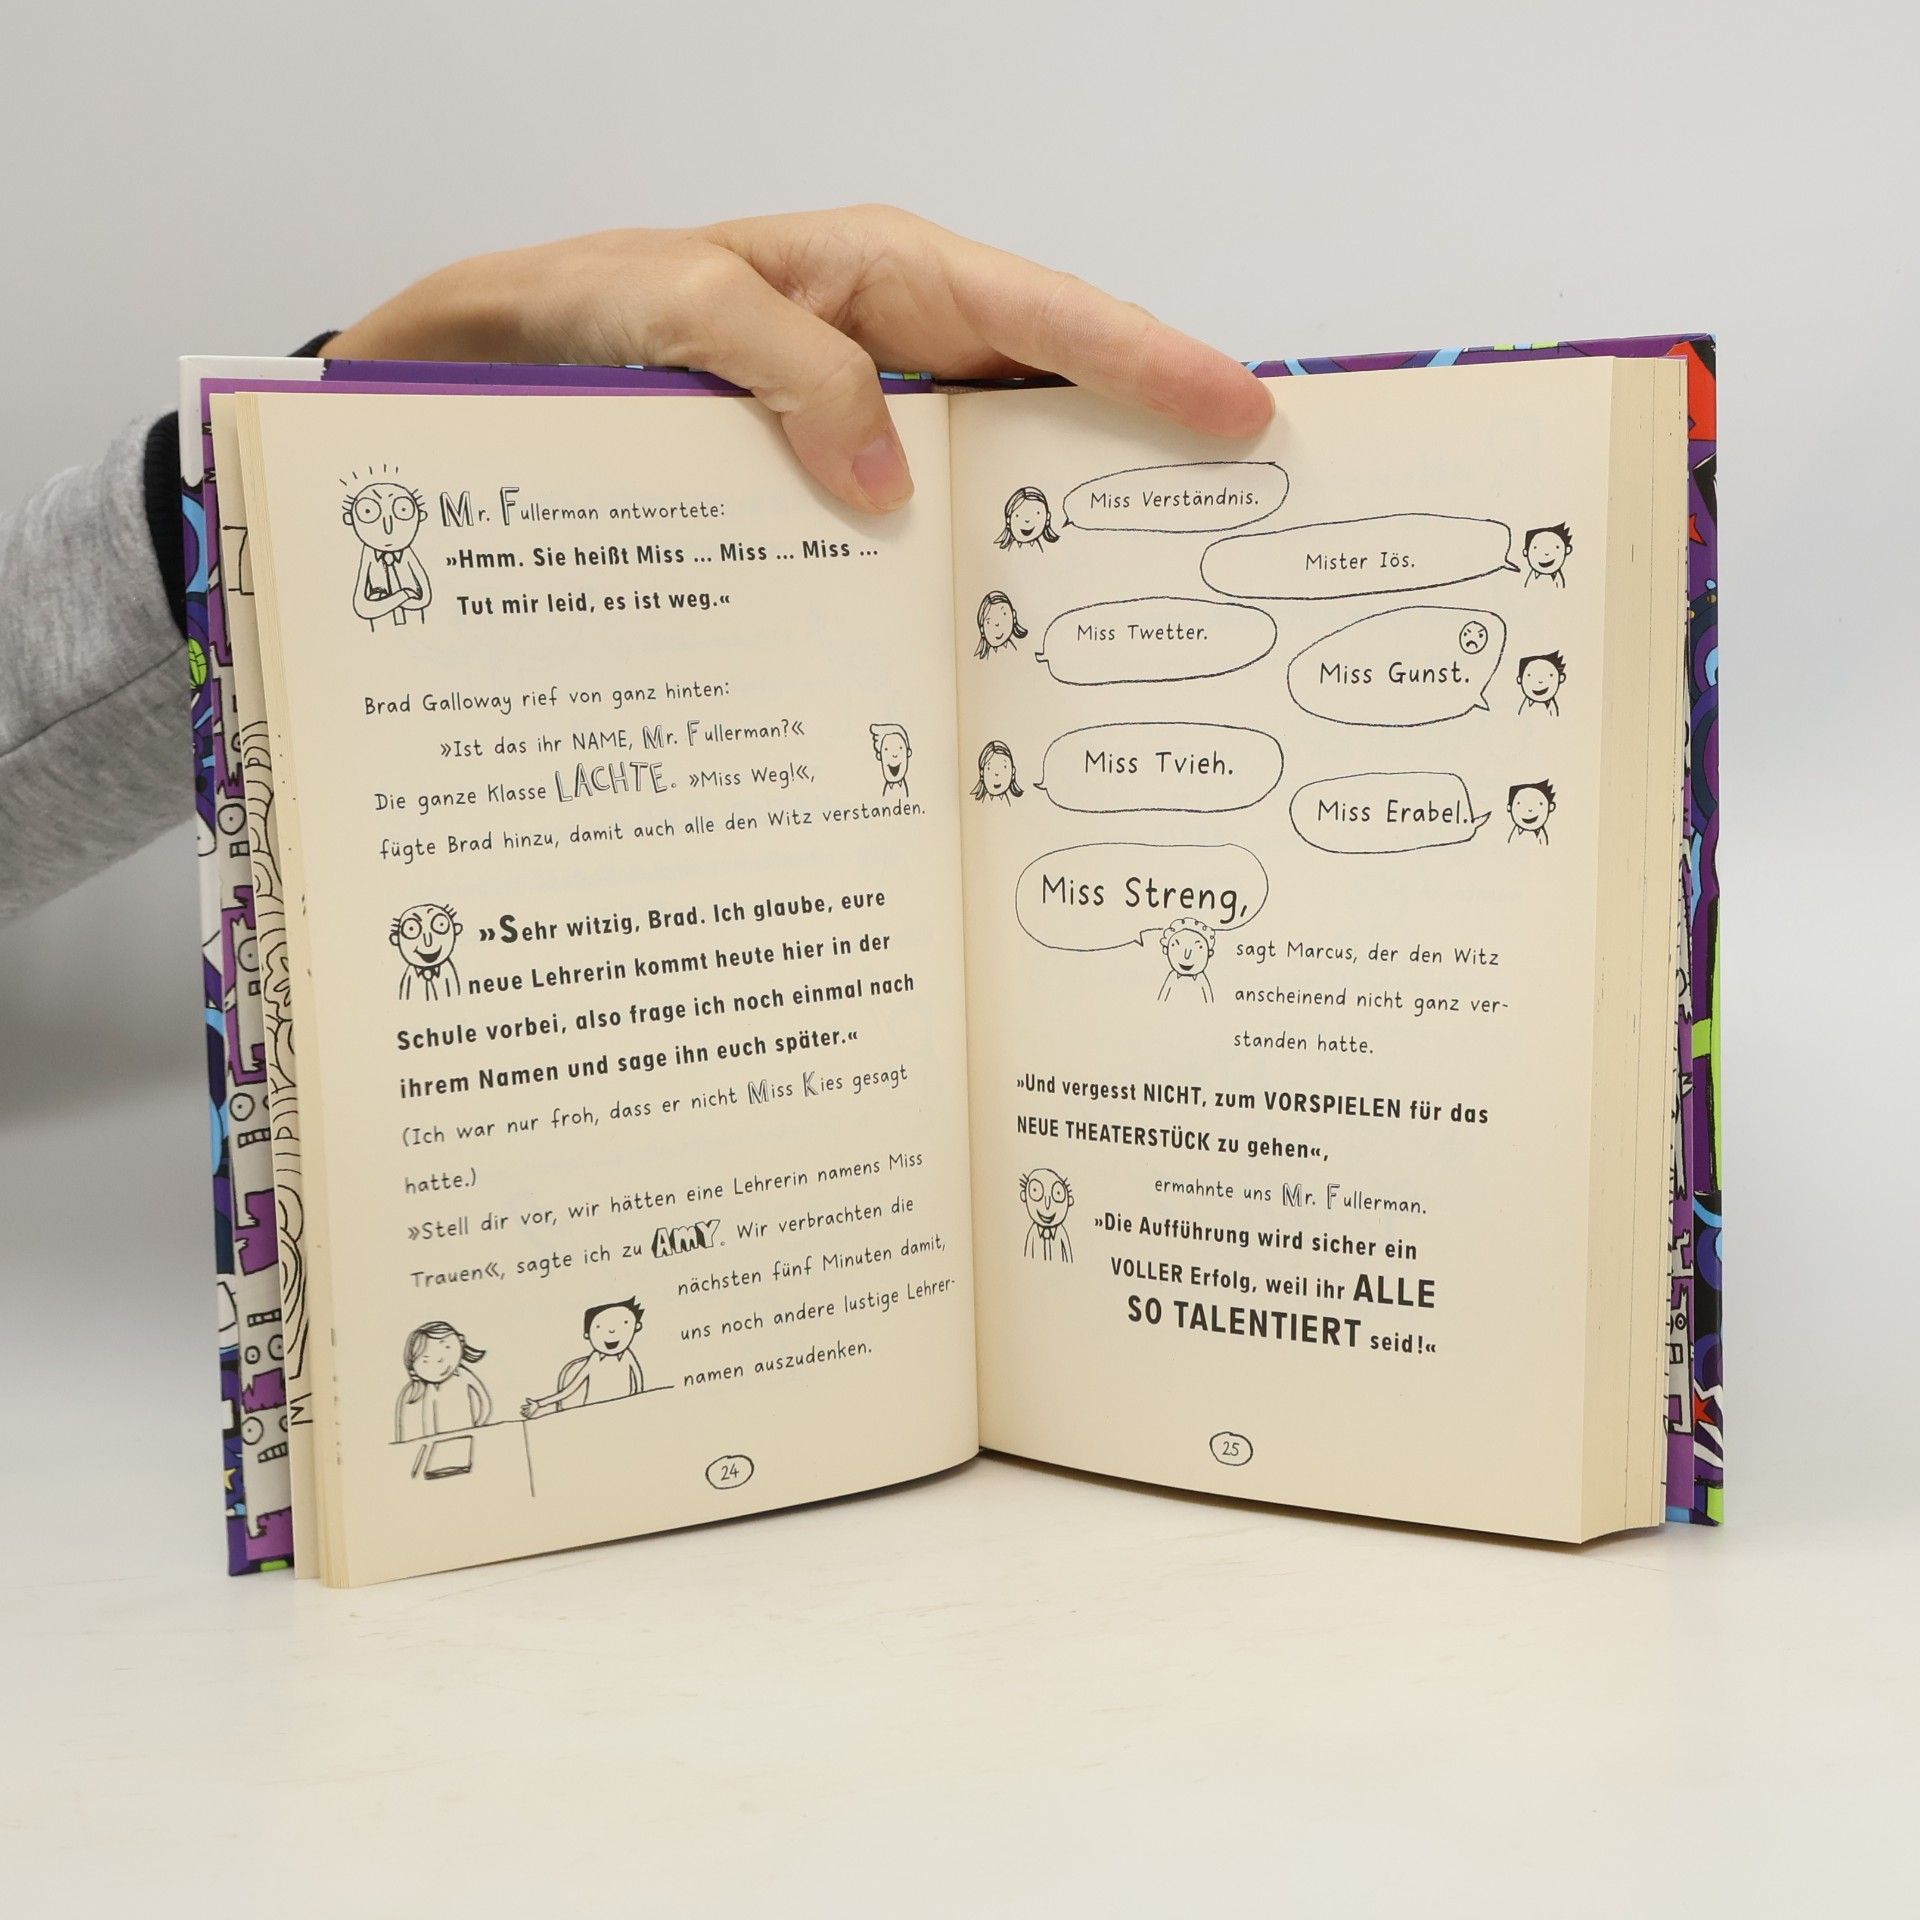 Mr. Fullerman antwortete:
»Hmm. Sie heißt Miss ... Miss ... Miss ...
Tut mir leid, es ist weg.«
Brad Galloway rief von ganz hinten:
»Ist das ihr NAME, Mr. Fullerman?«
Die ganze Klasse LACHTE. »Miss Weg!«,
fügte Brad hinzu, damit auch alle den Witz verstanden.
»Sehr witzig, Brad. Ich glaube, eure
neue Lehrerin kommt heute hier in der
Schule vorbei, also frage ich noch einmal nach
ihrem Namen und sage ihn euch später.«
(Ich war nur froh, dass er nicht Miss Kies gesagt
hatte.)
»Stell dir vor, wir hätten eine Lehrerin namens Miss
Trauen«, sagte ich zu AMY. Wir verbrachten die
nächsten fünf Minuten damit,
uns noch andere lustige Lehrer-
namen auszudenken.
24
Miss Verständnis.
Mister Iös.
Miss Twetter.
Miss Gunst.
Miss Tvieh.
Miss Erabel.
Miss Streng,
sagt Marcus, der den Witz
anscheinend nicht ganz ver-
standen hatte.
»Und vergesst NICHT, zum VORSPIELEN für das
NEUE THEATERSTÜCK zu gehen«,
ermahnte uns Mr. Fullerman.
»Die Aufführung wird sicher ein
VOLLER Erfolg, weil ihr ALLE
SO TALENTIERT seid!«
25